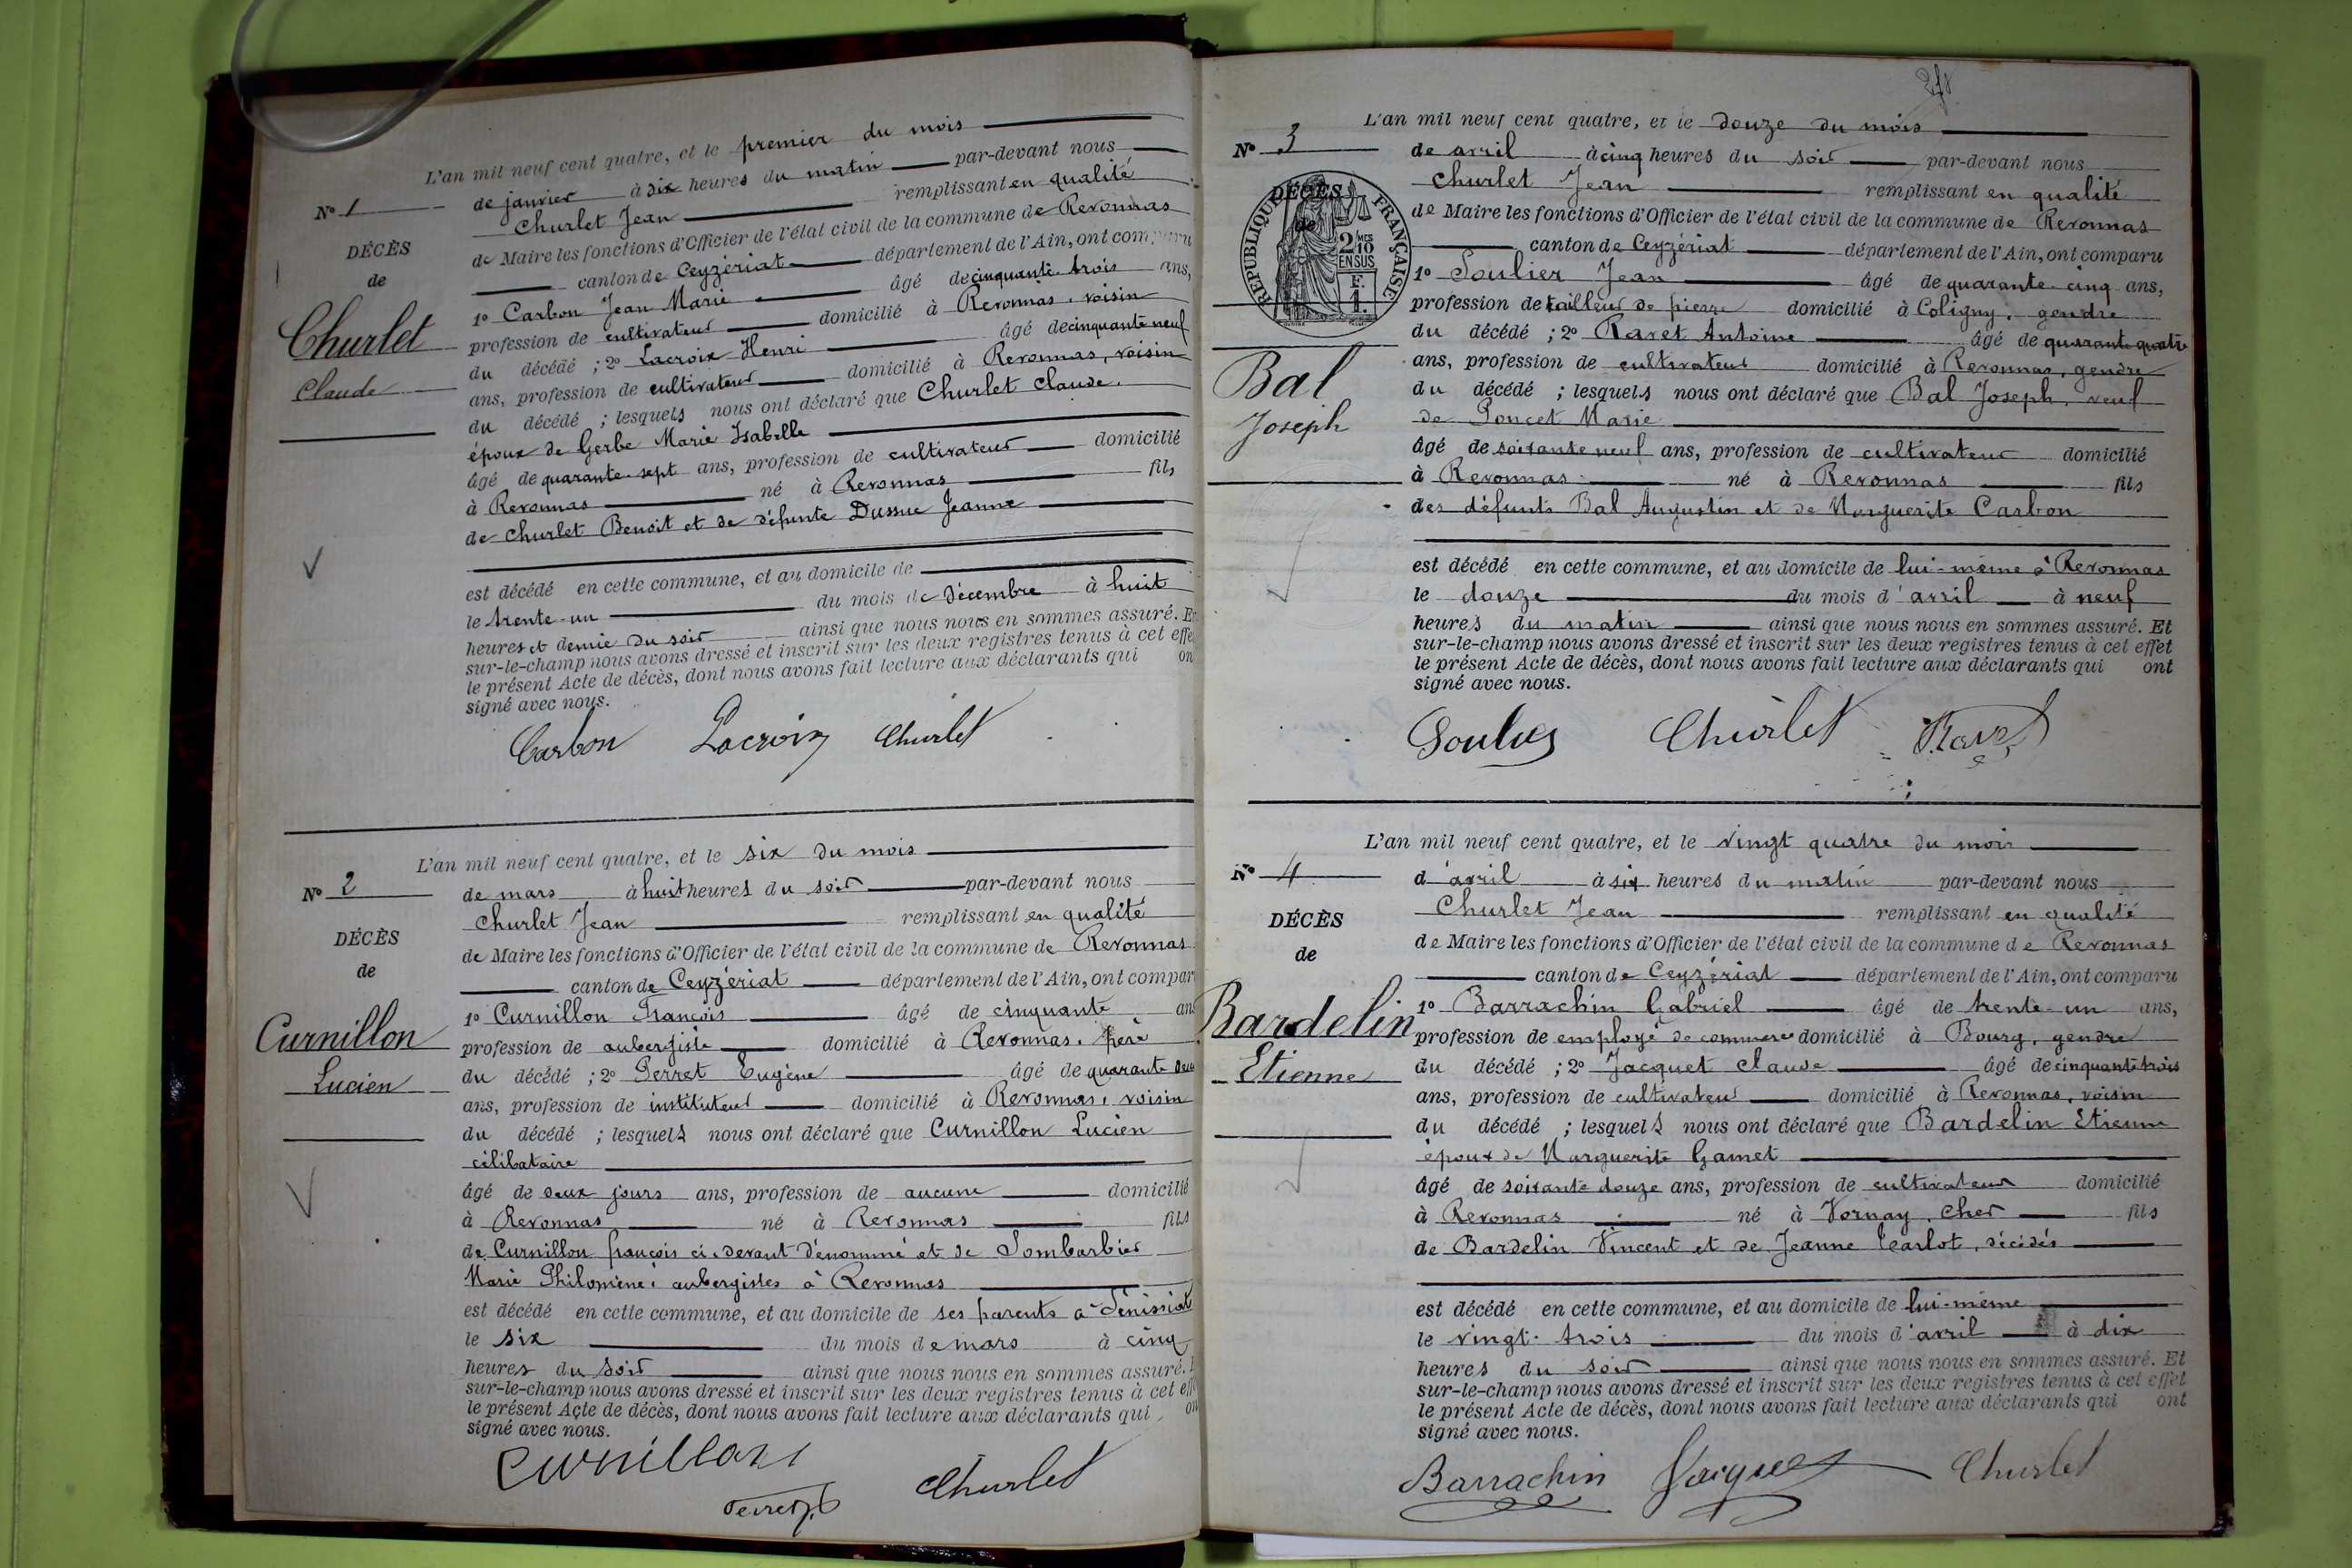 L'an mil neuf cent quatre, et le premier du mois
N° 1
de janvier à dix heures du matin par-devant nous
Churlet Jean remplissant en qualité
DÉCÈS
de Maire les fonctions d'Officier de l'état civil de la commune de Revonnas
de
canton de Ceyzériat département de l'Ain, ont comparu
1° Carbon Jean Marie âgé de cinquante-trois ans,
Churlet
profession de cultivateur domicilié à Revonnas, voisin
du décédé ; 2° Lacroix Henri âgé de cinquante neuf
Claude
ans, profession de cultivateur domicilié à Revonnas, voisin
du décédé ; lesquels nous ont déclaré que Churlet Claude.
époux de Gerbe Marie Isabelle
âgé de quarante-sept ans, profession de cultivateur domicilié
à Revonnas né à Revonnas fils
de Churlet Benoit et de défunte Dussuc Jeanne
est décédé en cette commune, et au domicile de
le trente-un du mois de décembre à huit
heures et demie du soir ainsi que nous nous en sommes assuré. Et
sur-le-champ nous avons dressé et inscrit sur les deux registres tenus à cet effe
le présent Acte de décès, dont nous avons fait lecture aux déclarants qui on
signé avec nous.
Carbon Lacroix Churlet
L'an mil neuf cent quatre, et le six du mois
N° 2
de mars à huit heures du soir par-devant nous
Churlet Jean remplissant en qualité
DÉCÈS
de Maire les fonctions d'Officier de l'état civil de la commune de Revonnas
de
canton de Ceyzériat département de l'Ain, ont compar
1° Curnillon François âgé de cinquante ans
Curnillon
profession de aubergiste domicilié à Revonnas, père
Lucien
du décédé ; 2° Perret Eugène âgé de quarante deux
ans, profession de instituteur domicilié à Revonnas, voisin
du décédé ; lesquels nous ont déclaré que Curnillon Lucien
célibataire
âgé de deux jours ans, profession de aucune domicilié
à Revonnas né à Revonnas fils
de Curnillon françois ci-devant dénommé et de Sombarbier
Marie Philomène, aubergistes à Revonnas
est décédé en cette commune, et au domicile de ses parents à Sénissiat
le six du mois de mars à cinq
heures du soir ainsi que nous nous en sommes assuré.
sur-le-champ nous avons dressé et inscrit sur les deux registres tenus à cet eff
le présent Acte de décès, dont nous avons fait lecture aux déclarants qui on
signé avec nous.
Curnillon Perret Churlet
L'an mil neuf cent quatre, et le douze du mois
N° 3
de avril à cinq heures du soir par-devant nous
Churlet Jean remplissant en qualité
DÉCÈS
de
RÉPUBLIQUE FRANÇAISE
2/10 MES
EN SUS
F.
1.
de Maire les fonctions d'Officier de l'état civil de la commune de Revonnas
canton de Ceyzériat département de l'Ain, ont comparu
1° Soulier Jean âgé de quarante-cinq ans,
profession de tailleur de pierre domicilié à Coligny, gendre
du décédé ; 2° Ravet Antoine âgé de quarante quatre
Bal
ans, profession de cultivateur domicilié à Revonnas, gendre
du décédé ; lesquels nous ont déclaré que Bal Joseph, veuf
Joseph
de Poncet Marie
âgé de soixante neuf ans, profession de cultivateur domicilié
à Revonnas né à Revonnas fils
des défunts Bal Augustin et de Marguerite Carbon
est décédé en cette commune, et au domicile de lui-même à Revonnas
le douze du mois d'avril à neuf
heures du matin ainsi que nous nous en sommes assuré. Et
sur-le-champ nous avons dressé et inscrit sur les deux registres tenus à cet effet
le présent Acte de décès, dont nous avons fait lecture aux déclarants qui ont
signé avec nous.
Soulier Churlet Ravet
L'an mil neuf cent quatre, et le vingt quatre du mois
N° 4
d'avril à six heures du matin par-devant nous
Churlet Jean remplissant en qualité
DÉCÈS
de Maire les fonctions d'Officier de l'état civil de la commune de Revonnas
de
canton de Ceyzériat département de l'Ain, ont comparu
1° Barrachin Gabriel âgé de trente-un ans,
Bardelin
profession de employé de commerce domicilié à Bourg, gendre
Etienne
du décédé ; 2° Jacquet Claude âgé de cinquante trois
ans, profession de cultivateur domicilié à Revonnas, voisin
du décédé ; lesquels nous ont déclaré que Bardelin Etienne
époux de Marguerite Gamet
âgé de soixante douze ans, profession de cultivateur domicilié
à Revonnas né à Vornay, Cher fils
de Bardelin Vincent et de Jeanne décédés
est décédé en cette commune, et au domicile de lui-même
le vingt-trois du mois d'avril à dix
heures du soir ainsi que nous nous en sommes assuré. Et
sur-le-champ nous avons dressé et inscrit sur les deux registres tenus à cet effet
le présent Acte de décès, dont nous avons fait lecture aux déclarants qui ont
signé avec nous.
Barrachin Jacquet Churlet